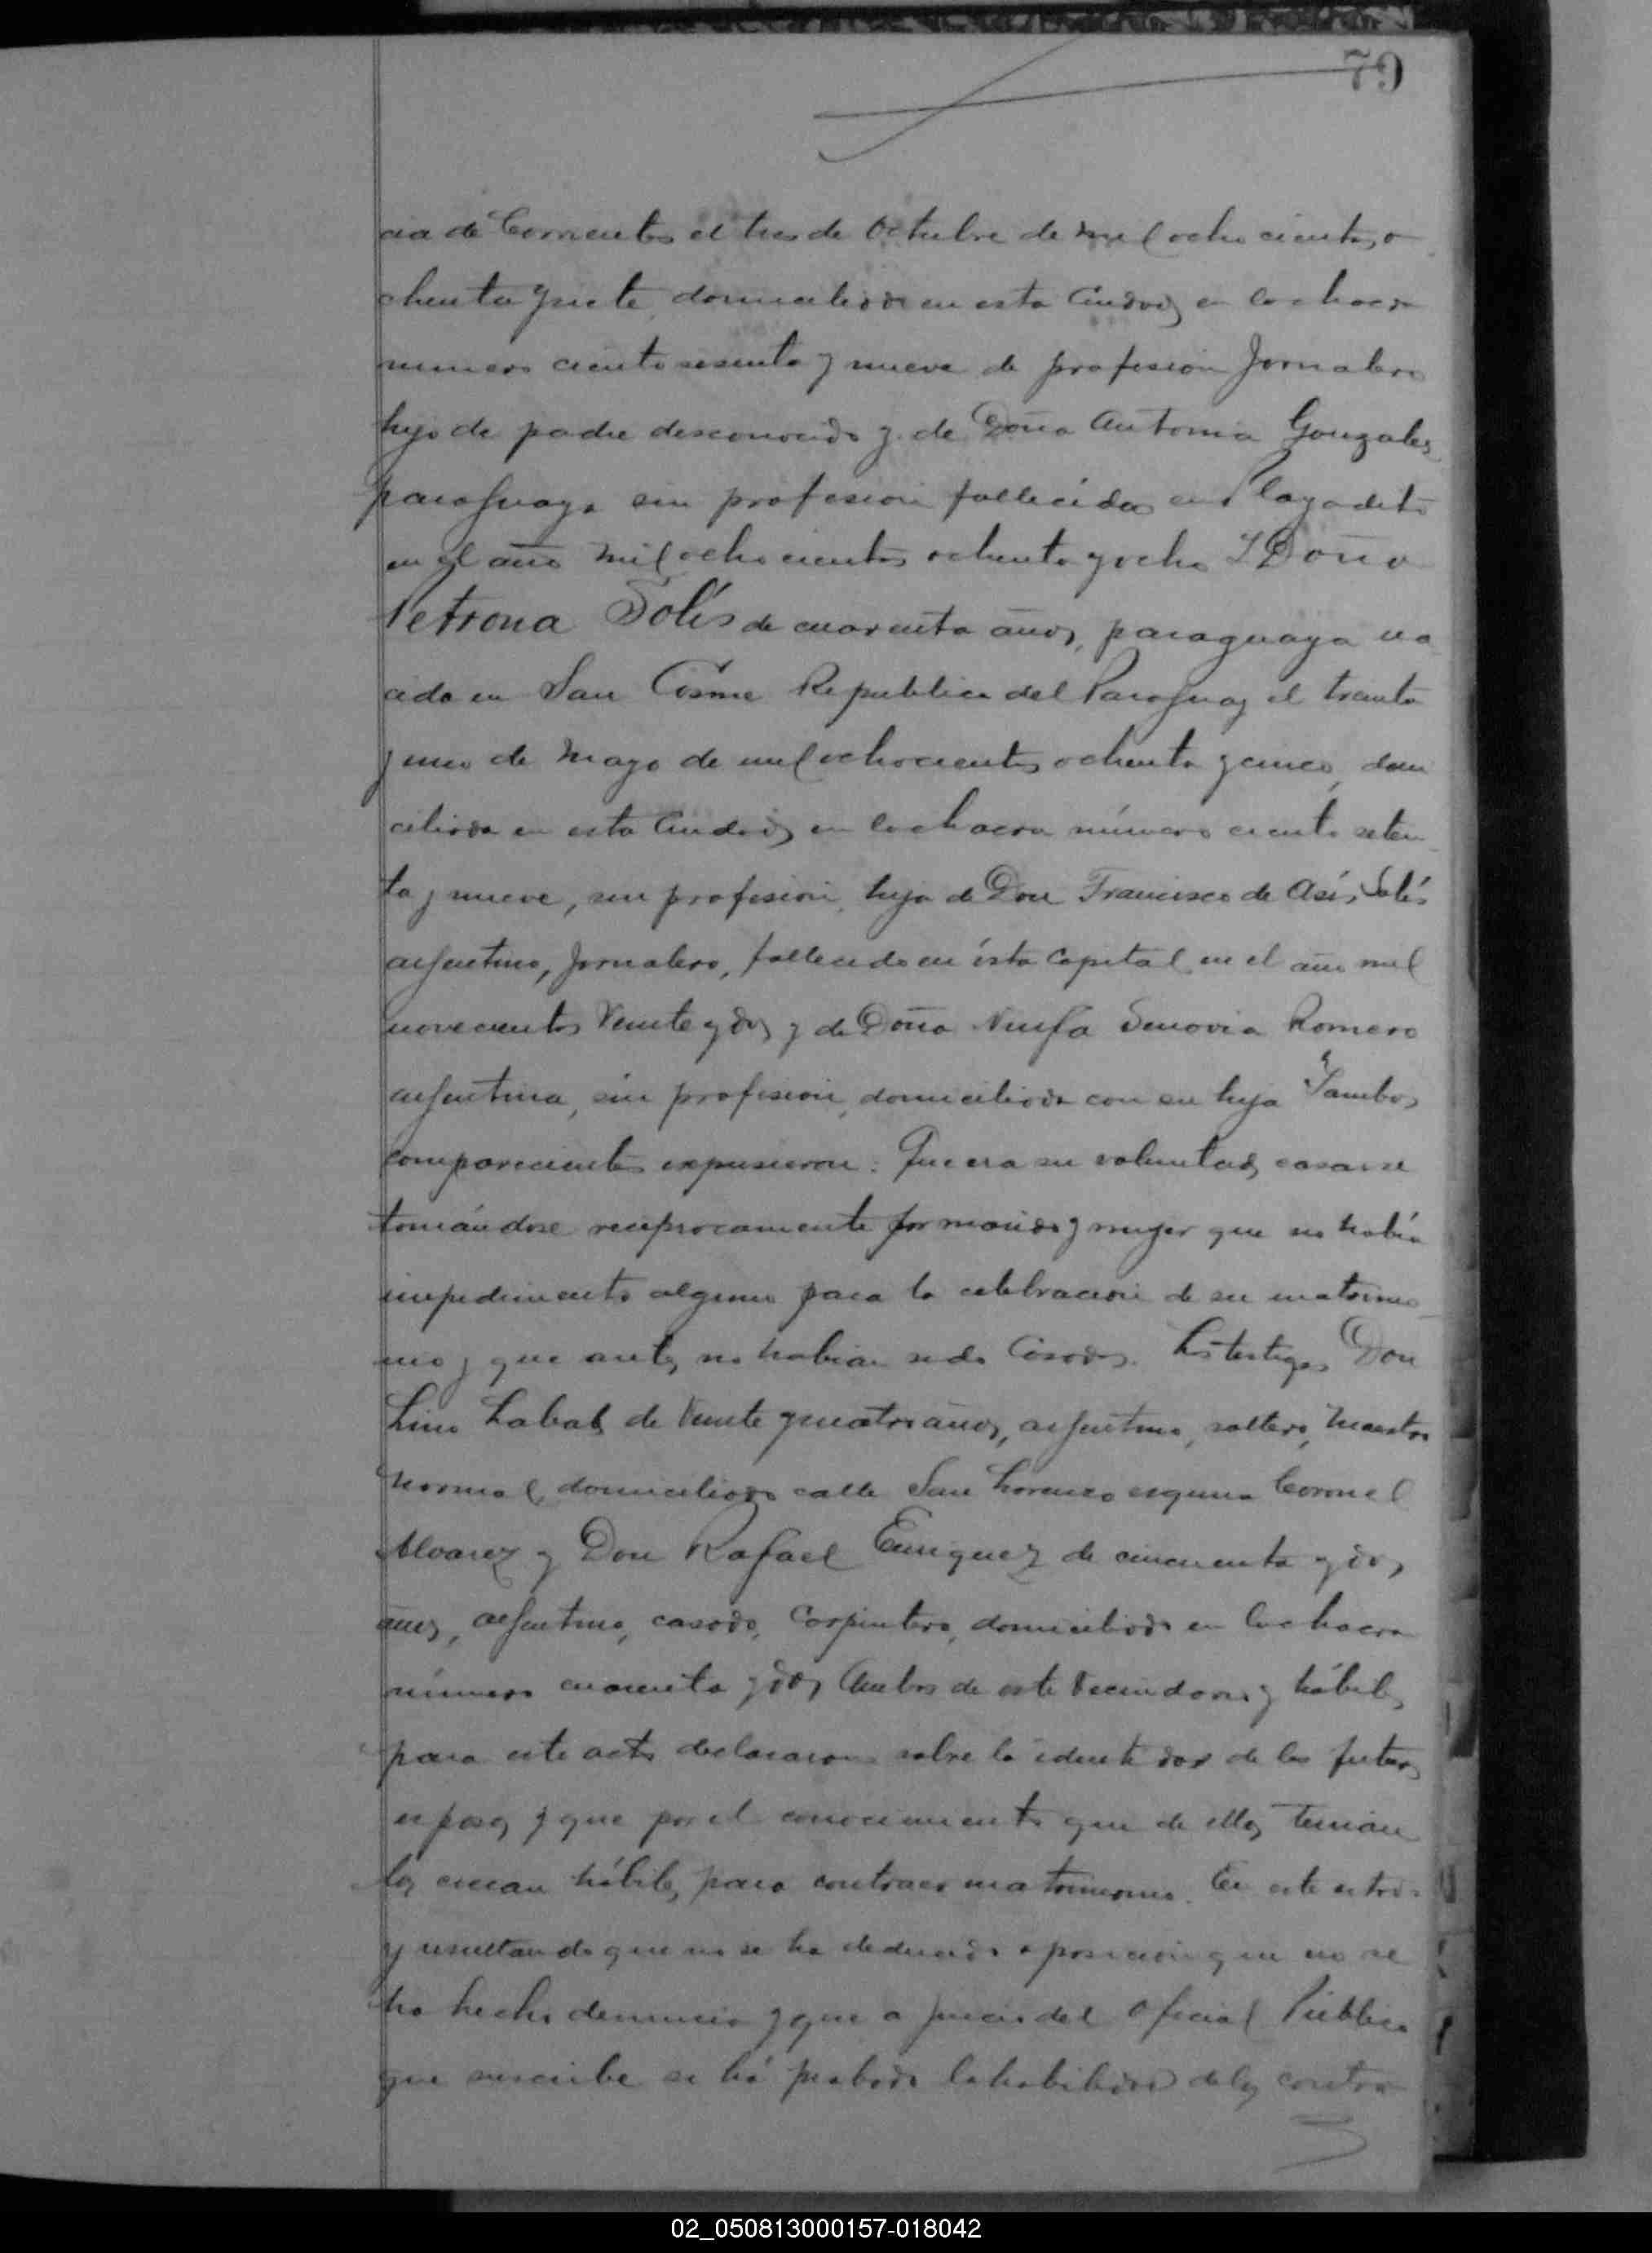 79
cia de Corrientes el tres de Octubre de mil ocho cientos o
chenta y siete, domiciliado en esta Ciudad en la chacra
numero ciento sesenta y nueve de profesion Jornalero
hijo de padre desconocido y de Doña Antonia Gonzales
paraguaya sin profesion fallecida en Playadito
en el año mil ocho cientos ochenta y ocho Y Doña
Petrona Solís de cuarenta años, paraguaya na
cida en San Cosme Republica del Paraguay el treinta
y uno de Mayo de mil ochocientos ochenta y cinco, domi
ciliada en esta Ciudad en la chacra número ciento seten
ta y nueve, sin profesión, hija de Don Francisco de Asís Solís
argentino, Jornalero, fallecido en ésta Capital en el año mil
novecientos Veinte y dos y de Doña Ninfa Senovia Romero
argentina, sin profesión, domiciliada con su hija Y ambos
comparecientes expusieron: Que era su voluntad casarse
tomándose reciprocamente por marido y mujer que no había
impedimento alguno para la celebración de su matrimo
nio y que antes no habian sido Casados. Los testigos Don
Lino Labat de Veinte y cuatro años, argentino, soltero, Maestro
Normal, domiciliado calle San Lorenzo esquina Coronel
Alvarez y Don Rafael Enriquez de cincuenta y dos
años, argentino, casado, Carpintero, domiciliado en la chacra
número cuarenta y dos Ambos de este Vecindario y hábiles
para este acto declararon sobre la identidad de los futuros
esposos y que por el conocimiento que de ellos Tenian
los creian hábiles para contraer matrimonio. En este estado
y resultando que no se ha deducido oposición que no se
ha hecho denuncia y que a juicio del Oficial Público
que suscribe se há probado la habilidad de los contra
02_050813000157-018042